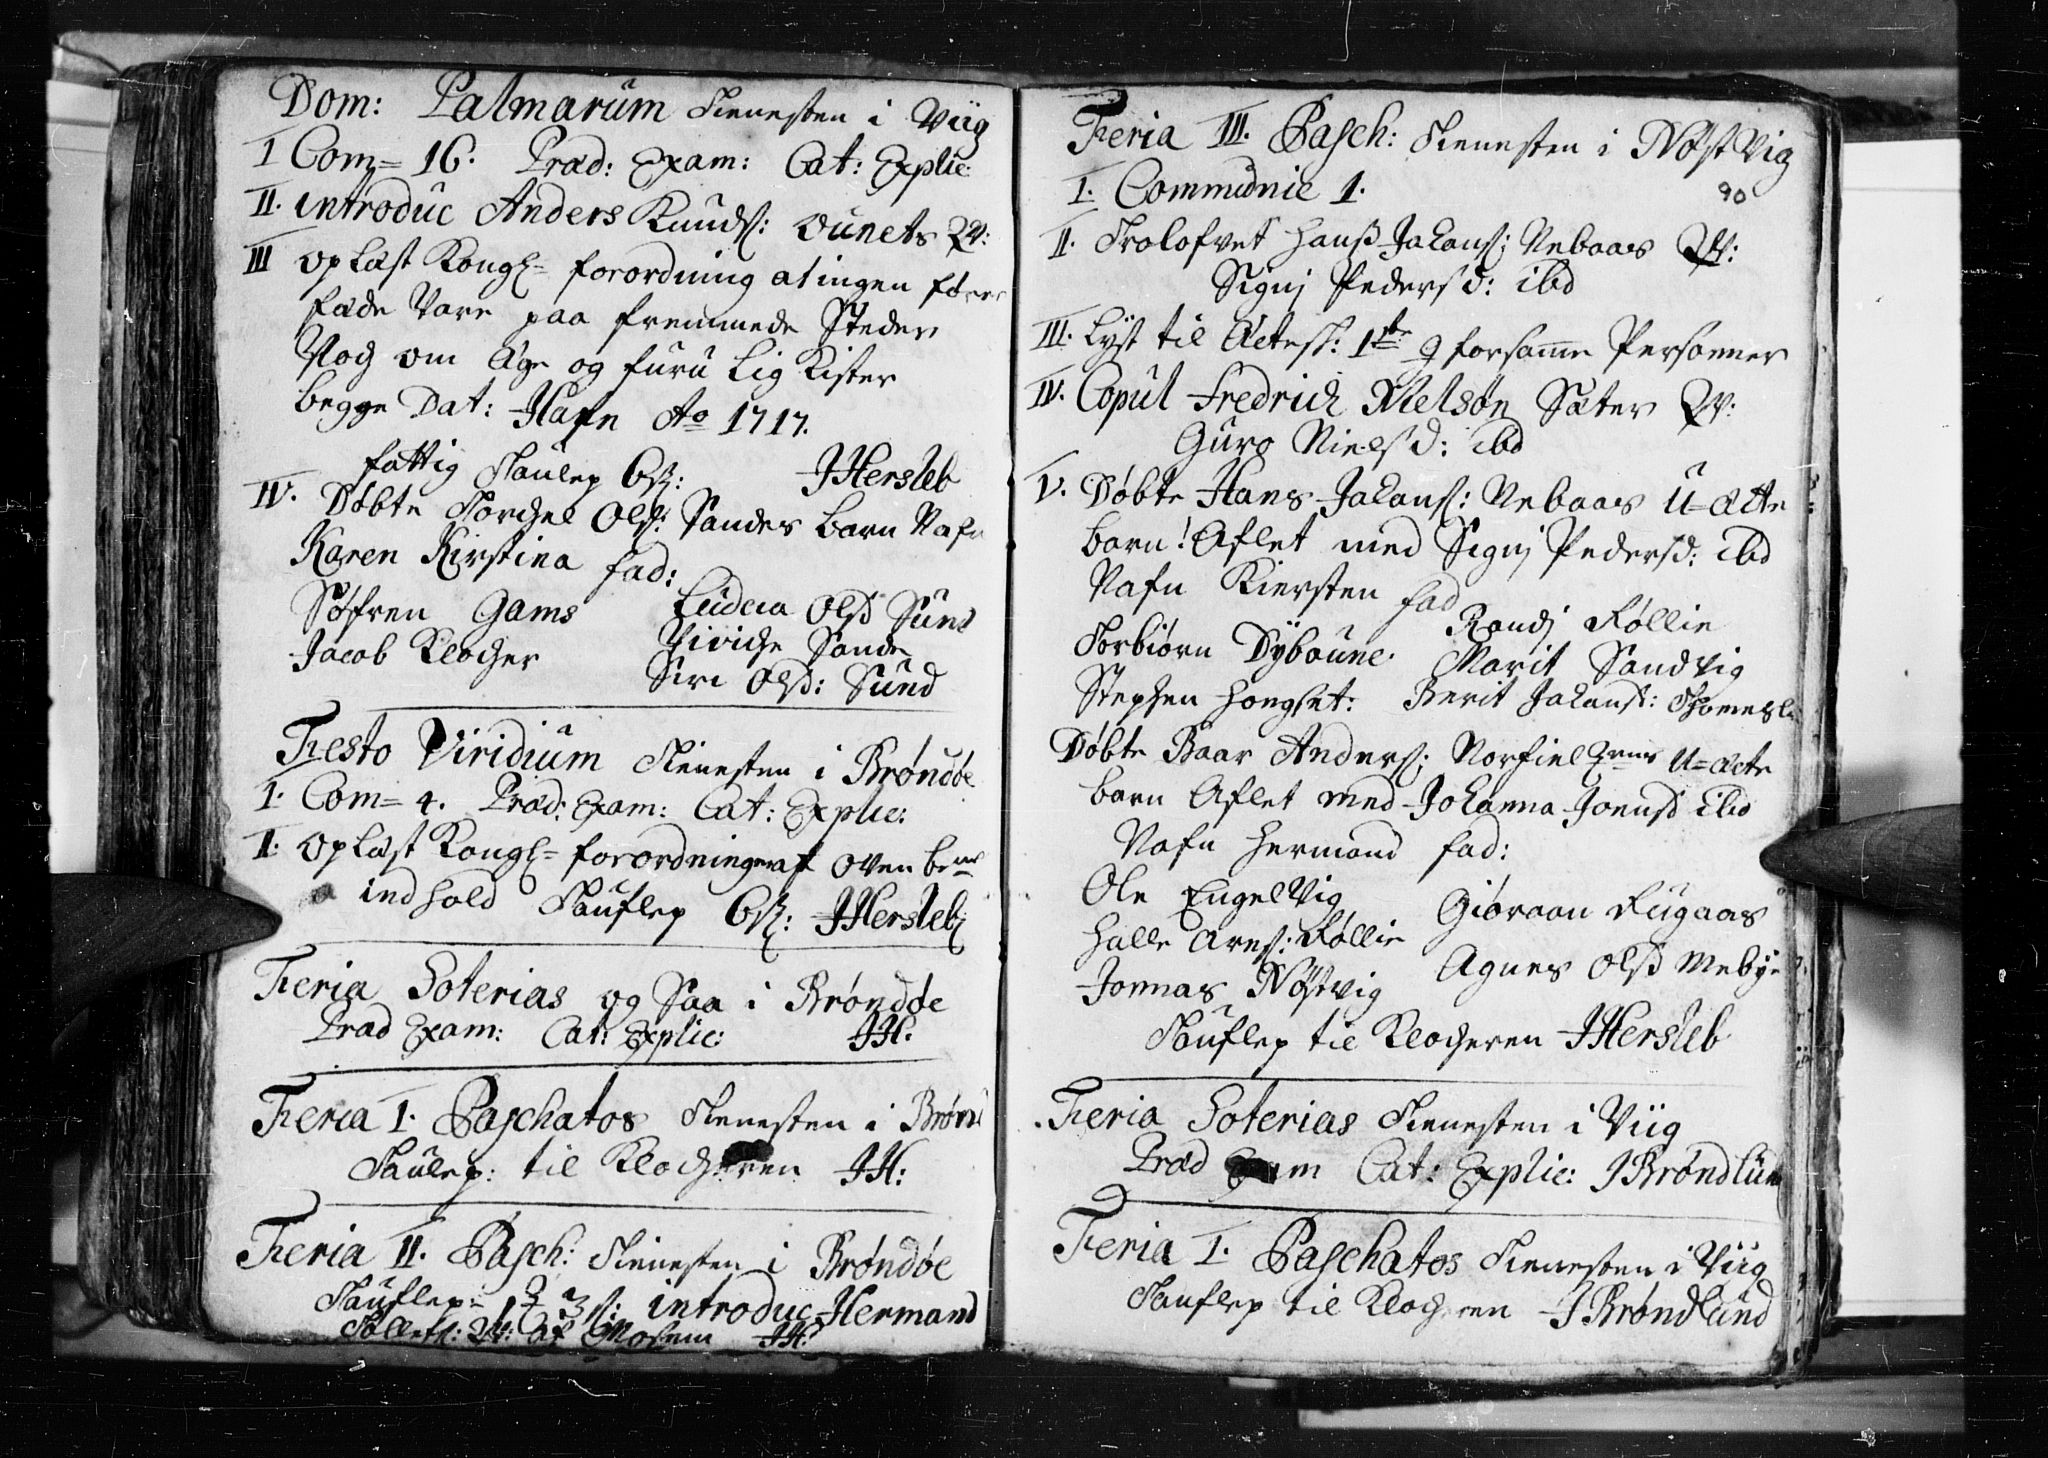 Dom: Palmarum Tienesten i Viig
I Com= 16. Præd: Exam: Cat: Explic:
II. introduc Anders Knuds: Q:
III oplæst Kongl= forordning at ingen fører
fæde Vare paa fremmede Steder
Nog om Æge og furu Lig Kister
begge Dat: Hafn Ao 1717.
fattig Taulep 6ß: JHersleb
IV. Døbte Torchel Ols: Sandes barn Nafn
Karen Kirstina fad:
Søfren Gams Ols Sund
Jacob Klocher Sande
Siri Olsd: Sund
Festo Viridium Tienesten i Brøndøe
I. Com= 4. Præd: Exam: Cat: Explic:
I. oplæst Kongl= forordninger af oven be
indhold Tauflep 6ß: JHersleb
Feria Soterias og Saa i Brøndøe
Præd Exam: Cat: Explic: JH:
Feria I. Paschatos Tienesten i Brønd
Taulep: til Klocheren JH:
Feria II. Pasch: Tienesten i Brøndøe
Tauflep: introduc Hermand
Q: af Mosem JH:
Feria III. Pasch: Tienesten i Nøst Vig
90
I. Communic 1.
II. Trolofvet Hans Johans: Nebaas Q:
Signj Pedersd: ibd
III. Lyst til Ectesk: 1te g forsamme Personner
IV. Copul Fredrich Nielsøn Sæter Q:
Guro Nielsd: ibd
V. Døbte Hans Johans: Nebaas U=ectte
barn! Aflet med Signj Pedersd: ibd
Nafn Kiersten fad
Torbiørn Dybaune. Randj Røllie
Marit Sandvig
Stephen Hongset: Berit Johansd:
Døbte Baar Anders: Norfiel U=ecte
barn Aflet med Johanna Jonsd ibid
Nafn Hermand fad:
Ole Engelvig Giøraan Rugaas
Halle Arns: Røllie
Jonnas Nøstvig Agnes Olsd Mebye
Tauflep til Klocheren JHersleb
Feria Soterias Tienesten i Viig
Præd Exam Cat: Explic: JBrøndlund
Feria I. Paschatos Tienesten i Viig
Tauflep til Klocheren JBrøndlund